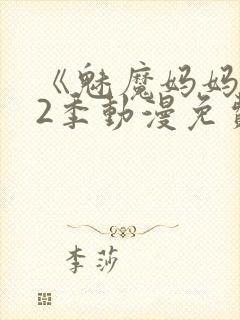 《魅魔妈妈
2季動漫免
李莎